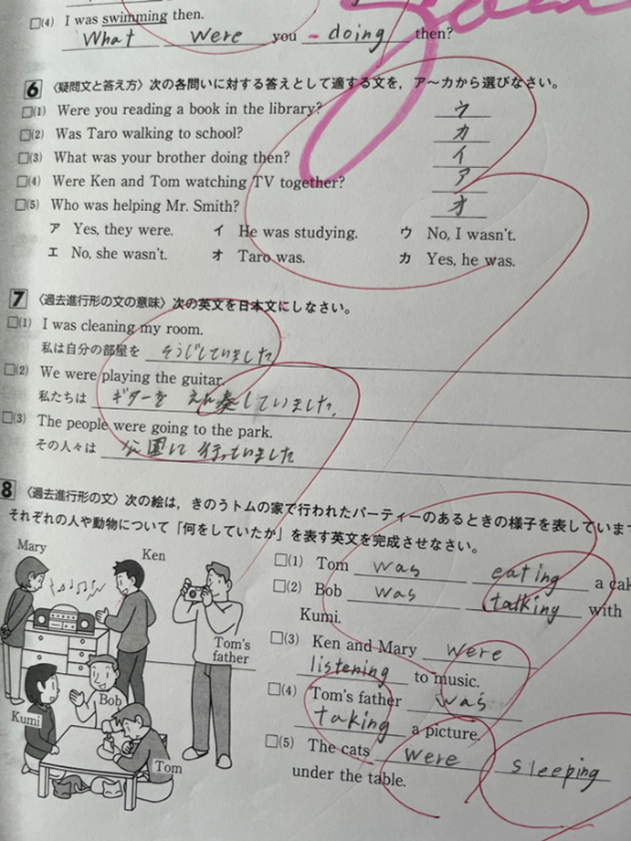 □(4) I was swimming then.
What were you doing then?
6 〈疑問文と答え方〉次の各問いに対する答えとして適する文を，ア〜カから選びなさい。
□(1) Were you reading a book in the library? ウ
□(2) Was Taro walking to school? カ
□(3) What was your brother doing then? イ
□(4) Were Ken and Tom watching TV together? ア
□(5) Who was helping Mr. Smith? オ
ア Yes, they were. イ He was studying. ウ No, I wasn't.
エ No, she wasn't. オ Taro was. カ Yes, he was.
7 〈過去進行形の文の意味〉次の英文を日本文にしなさい。
□(1) I was cleaning my room.
私は自分の部屋を そうじしていました
□(2) We were playing the guitar.
私たちは ギターを えん奏していました。
□(3) The people were going to the park.
その人々は 公園に 行っていました
8 〈過去進行形の文〉次の絵は，きのうトムの家で行われたパーティーのあるときの様子を表していま
それぞれの人や動物について「何をしていたか」を表す英文を完成させなさい。
Mary
Ken
Tom's
father
Bob
Kumi
Tom
□(1) Tom was eating a cak
□(2) Bob was talking with
Kumi.
□(3) Ken and Mary were
listening to music.
□(4) Tom's father was
taking a picture.
□(5) The cats were sleeping
under the table.